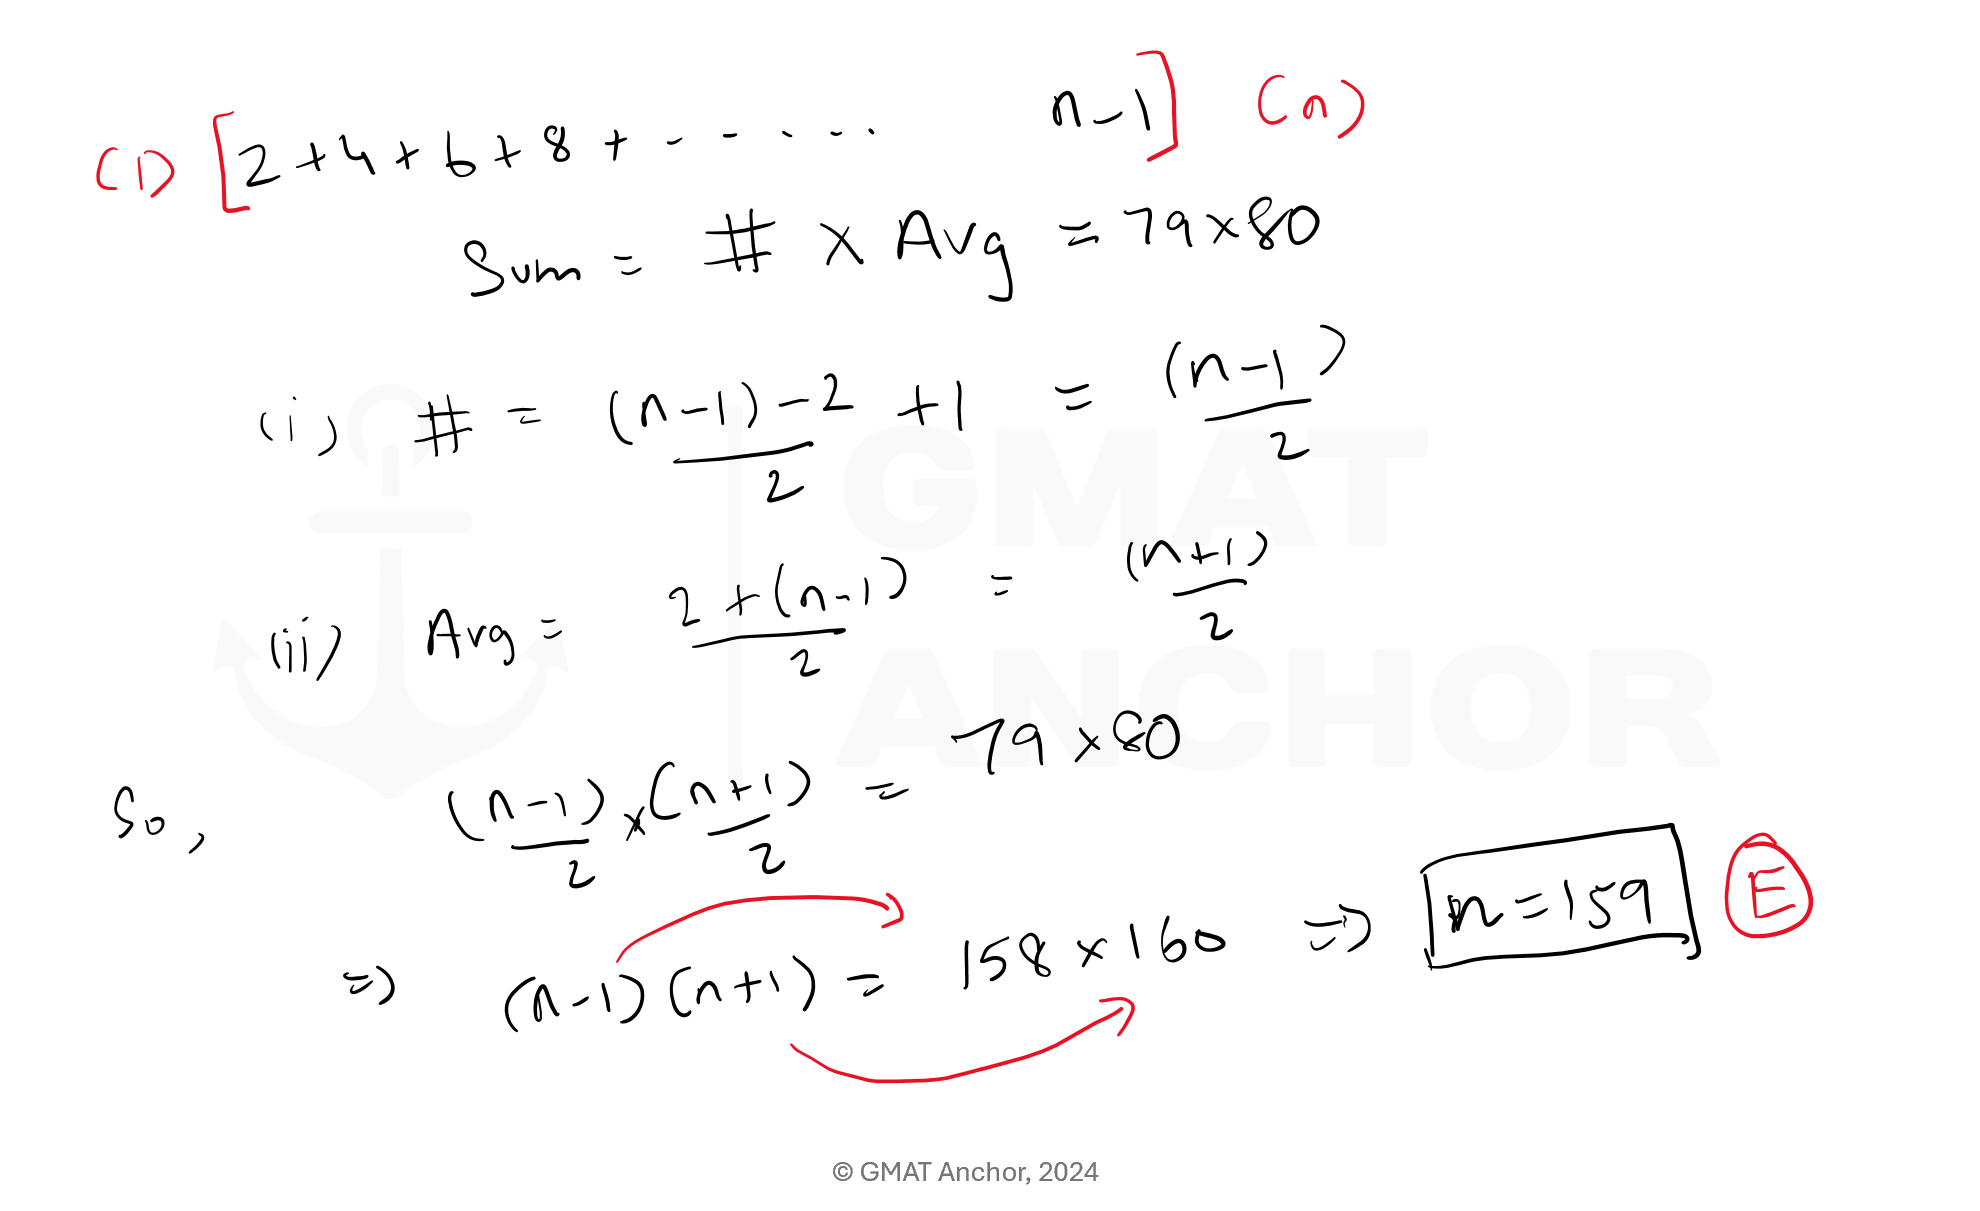 (1) [2 + 4 + 6 + 8 + - - - - - . n-1] (n)
Sum = # × Avg = 79×80
(i) # = (n-1)-2/2 +1 = (n-1)/2
(ii) Avg = 2+(n-1)/2 = (n+1)/2
So, (n-1)/2 × (n+1)/2 = 79×80
=> (n-1)(n+1) = 158×160 => n=159 E
GMAT
ANCHOR
© GMAT Anchor, 2024